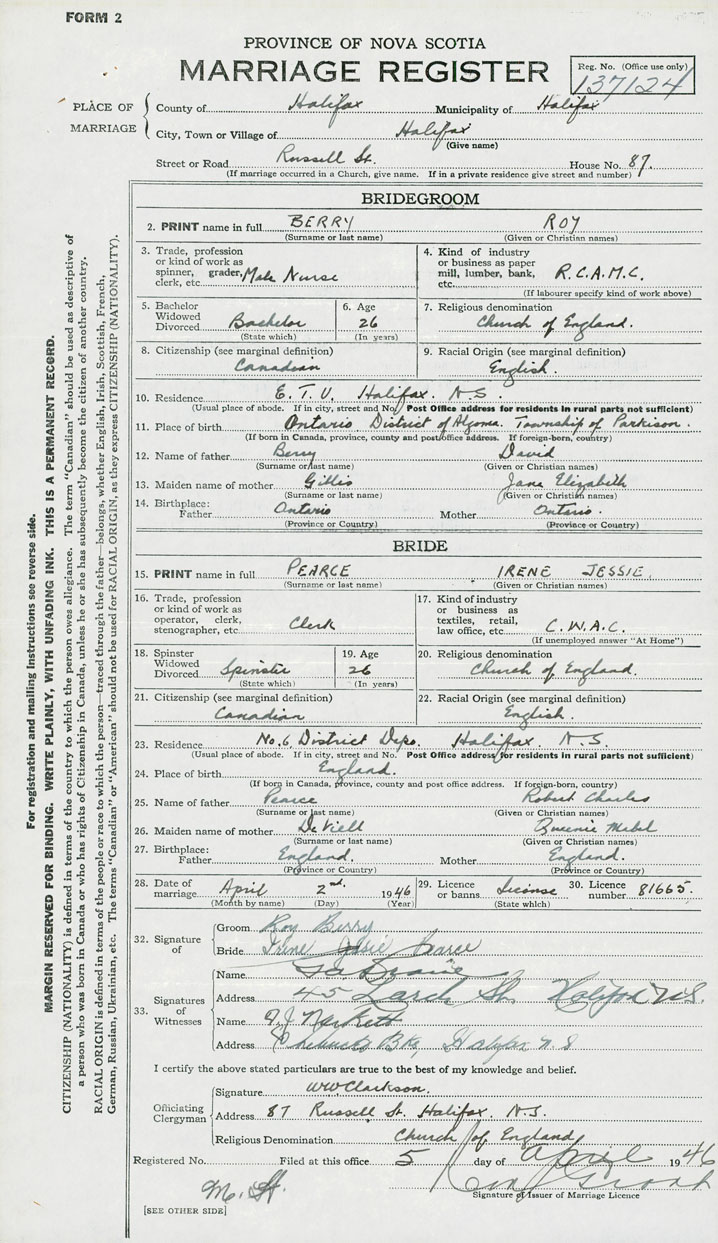 FORM 2
PROVINCE OF NOVA SCOTIA
MARRIAGE REGISTER
Reg. No. (Office use only)
137124
PLACE OF MARRIAGE
County of Halifax Municipality of Halifax
City, Town or Village of Halifax
(Give name)
Street or Road Russell St. House No. 87.
(If marriage occurred in a Church, give name. If in a private residence give street and number)
BRIDEGROOM
2. PRINT name in full BERRY ROY
(Surname or last name) (Given or Christian names)
3. Trade, profession or kind of work as spinner, grader, clerk, etc. Male Nurse
4. Kind of industry or business as paper mill, lumber, bank, etc. R.C.A.M.C.
(If labourer specify kind of work above)
5. Bachelor Widowed Divorced Bachelor
(State which)
6. Age 26
(In years)
7. Religious denomination
Church of England.
8. Citizenship (see marginal definition)
Canadian
9. Racial Origin (see marginal definition)
English.
10. Residence E.T.U. Halifax. N.S.
(Usual place of abode. If in city, street and No. Post Office address for residents in rural parts not sufficient)
11. Place of birth Ontario District of Algoma. Township of Parkison.
(If born in Canada, province, county and post office address. If foreign-born, country)
12. Name of father Berry David
(Surname or last name) (Given or Christian names)
13. Maiden name of mother Gillis Jane Elizabeth
(Surname or last name) (Given or Christian names)
14. Birthplace: Father Ontario Mother Ontario.
(Province or Country) (Province or Country)
BRIDE
15. PRINT name in full PEARCE IRENE JESSIE.
(Surname or last name) (Given or Christian names)
16. Trade, profession or kind of work as operator, clerk, stenographer, etc. Clerk
17. Kind of industry or business as textiles, retail, law office, etc. C.W.A.C.
(If unemployed answer "At Home")
18. Spinster Widowed Divorced Spinster
(State which)
19. Age 26
(In years)
20. Religious denomination
Church of England.
21. Citizenship (see marginal definition)
Canadian
22. Racial Origin (see marginal definition)
English.
23. Residence No. 6 District Depo. Halifax. N.S.
(Usual place of abode. If in city, street and No. Post Office address for residents in rural parts not sufficient)
24. Place of birth England.
(If born in Canada, province, county and post office address. If foreign-born, country)
25. Name of father Pearce Robert Charles
(Surname or last name) (Given or Christian names)
26. Maiden name of mother Queenie Mabel
(Surname or last name) (Given or Christian names)
27. Birthplace: Father England. Mother England.
(Province or Country) (Province or Country)
28. Date of marriage April 2nd. 1946
(Month by name) (Day) (Year)
29. Licence or banns License
(State which)
30. Licence number 81665.
32. Signature of
Groom Roy Berry
Bride Irene Jessie Pearce
33. Signatures of Witnesses
Name
Address 45 Larch St. Halifax N.S.
Name
Address Bks, Halifax N S
I certify the above stated particulars are true to the best of my knowledge and belief.
Officiating Clergyman
Signature WW Clarkson.
Address 87 Russell St. Halifax. N.S.
Religious Denomination Church of England
Registered No. Filed at this office 5 day of April 1946
Signature of Issuer of Marriage Licence
[SEE OTHER SIDE]
For registration and mailing instructions see reverse side.
MARGIN RESERVED FOR BINDING. WRITE PLAINLY, WITH UNFADING INK. THIS IS A PERMANENT RECORD.
CITIZENSHIP (NATIONALITY) is defined in terms of the country to which the person owes allegiance. The term "Canadian" should be used as descriptive of
a person who was born in Canada or who has rights of Citizenship in Canada, unless he or she has subsequently become the citizen of another country.
RACIAL ORIGIN is defined in terms of the people or race to which the person—traced through the father—belongs, whether English, Irish, Scottish, French,
German, Russian, Ukrainian, etc. The terms "Canadian" or "American" should not be used for RACIAL ORIGIN, as they express CITIZENSHIP (NATIONALITY).